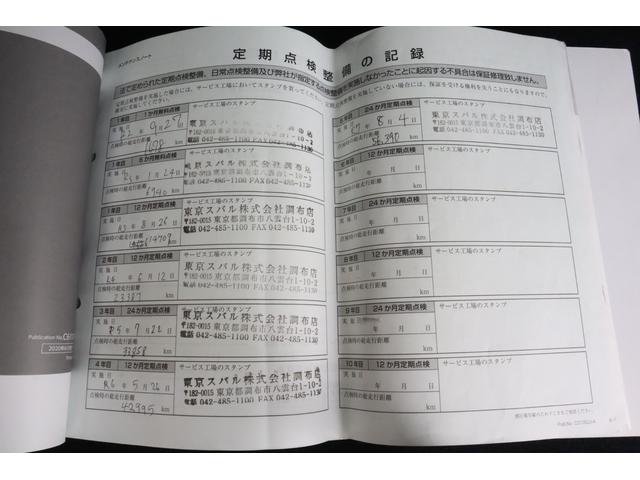 メンテナンスノート
定期点検整備の記録
法で定められた定期点検整備、日常点検整備及び弊社が指定する点検整備を実施しなかったことに起因する不具合は保証修理致しません。
定期点検整備を実施した場合には、サービス工場においてスタンプを貰ってください。
確実に実施してください。
1か月無料点検
サービス工場のスタンプ
実施日
9月27日
東京スバル株式会社調布店
〒182-0015 東京都調布市八雲台1-10-2
電話 042-485-1100 FAX 042-485-1130
点検時の総走行距離
km
6か月無料点検
サービス工場のスタンプ
実施日
1月24日
東京スバル株式会社調布店
〒182-0015 東京都調布市八雲台1-10-2
電話 042-485-1100 FAX 042-485-1130
点検時の総走行距離
6740 km
1年目 12か月定期点検
サービス工場のスタンプ
実施日
R3年8月26日
東京スバル株式会社調布店
〒182-0015 東京都調布市八雲台1-10-2
電話 042-485-1100 FAX 042-485-1130
点検時の総走行距離
14709 km
2年目 12か月定期点検
サービス工場のスタンプ
実施日
月12日
東京スバル株式会社調布店
〒182-0015 東京都調布市八雲台1-10-2
電話 042-485-1100 FAX 042-485-1130
点検時の総走行距離
23387 km
3年目 24か月定期点検
サービス工場のスタンプ
実施日
R5年7月22日
東京スバル株式会社調布店
〒182-0015 東京都調布市八雲台1-10-2
電話 042-485-1100 FAX 042-485-1130
点検時の総走行距離
33258 km
4年目 12か月定期点検
サービス工場のスタンプ
実施日
R6年5月26日
東京スバル株式会社調布店
〒182-0015 東京都調布市八雲台1-10-2
電話 042-485-1100 FAX 042-485-1130
点検時の総走行距離
42995 km
5年目 24か月定期点検
サービス工場のスタンプ
実施日
R7年8月4日
東京スバル株式会社調布店
〒182-0015 東京都調布市八雲台1-10-2
電話 042-485-1100 FAX 042-485-1130
点検時の総走行距離
56390 km
6年目 12か月定期点検
サービス工場のスタンプ
実施日
年 月 日
点検時の総走行距離
km
7年目 24か月定期点検
サービス工場のスタンプ
実施日
年 月 日
点検時の総走行距離
km
8年目 12か月定期点検
サービス工場のスタンプ
実施日
年 月 日
点検時の総走行距離
km
9年目 24か月定期点検
サービス工場のスタンプ
実施日
年 月 日
点検時の総走行距離
km
10年目 12か月定期点検
サービス工場のスタンプ
実施日
年 月 日
点検時の総走行距離
km
Publication No.